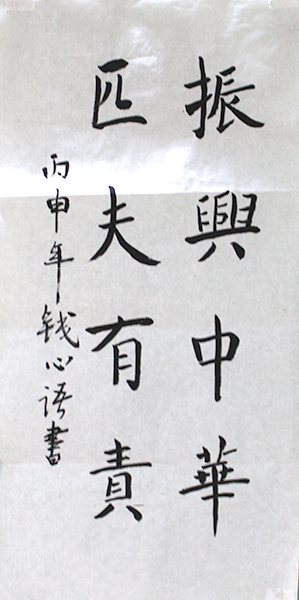 振興中華
匹夫有責
丙申年钱心语書